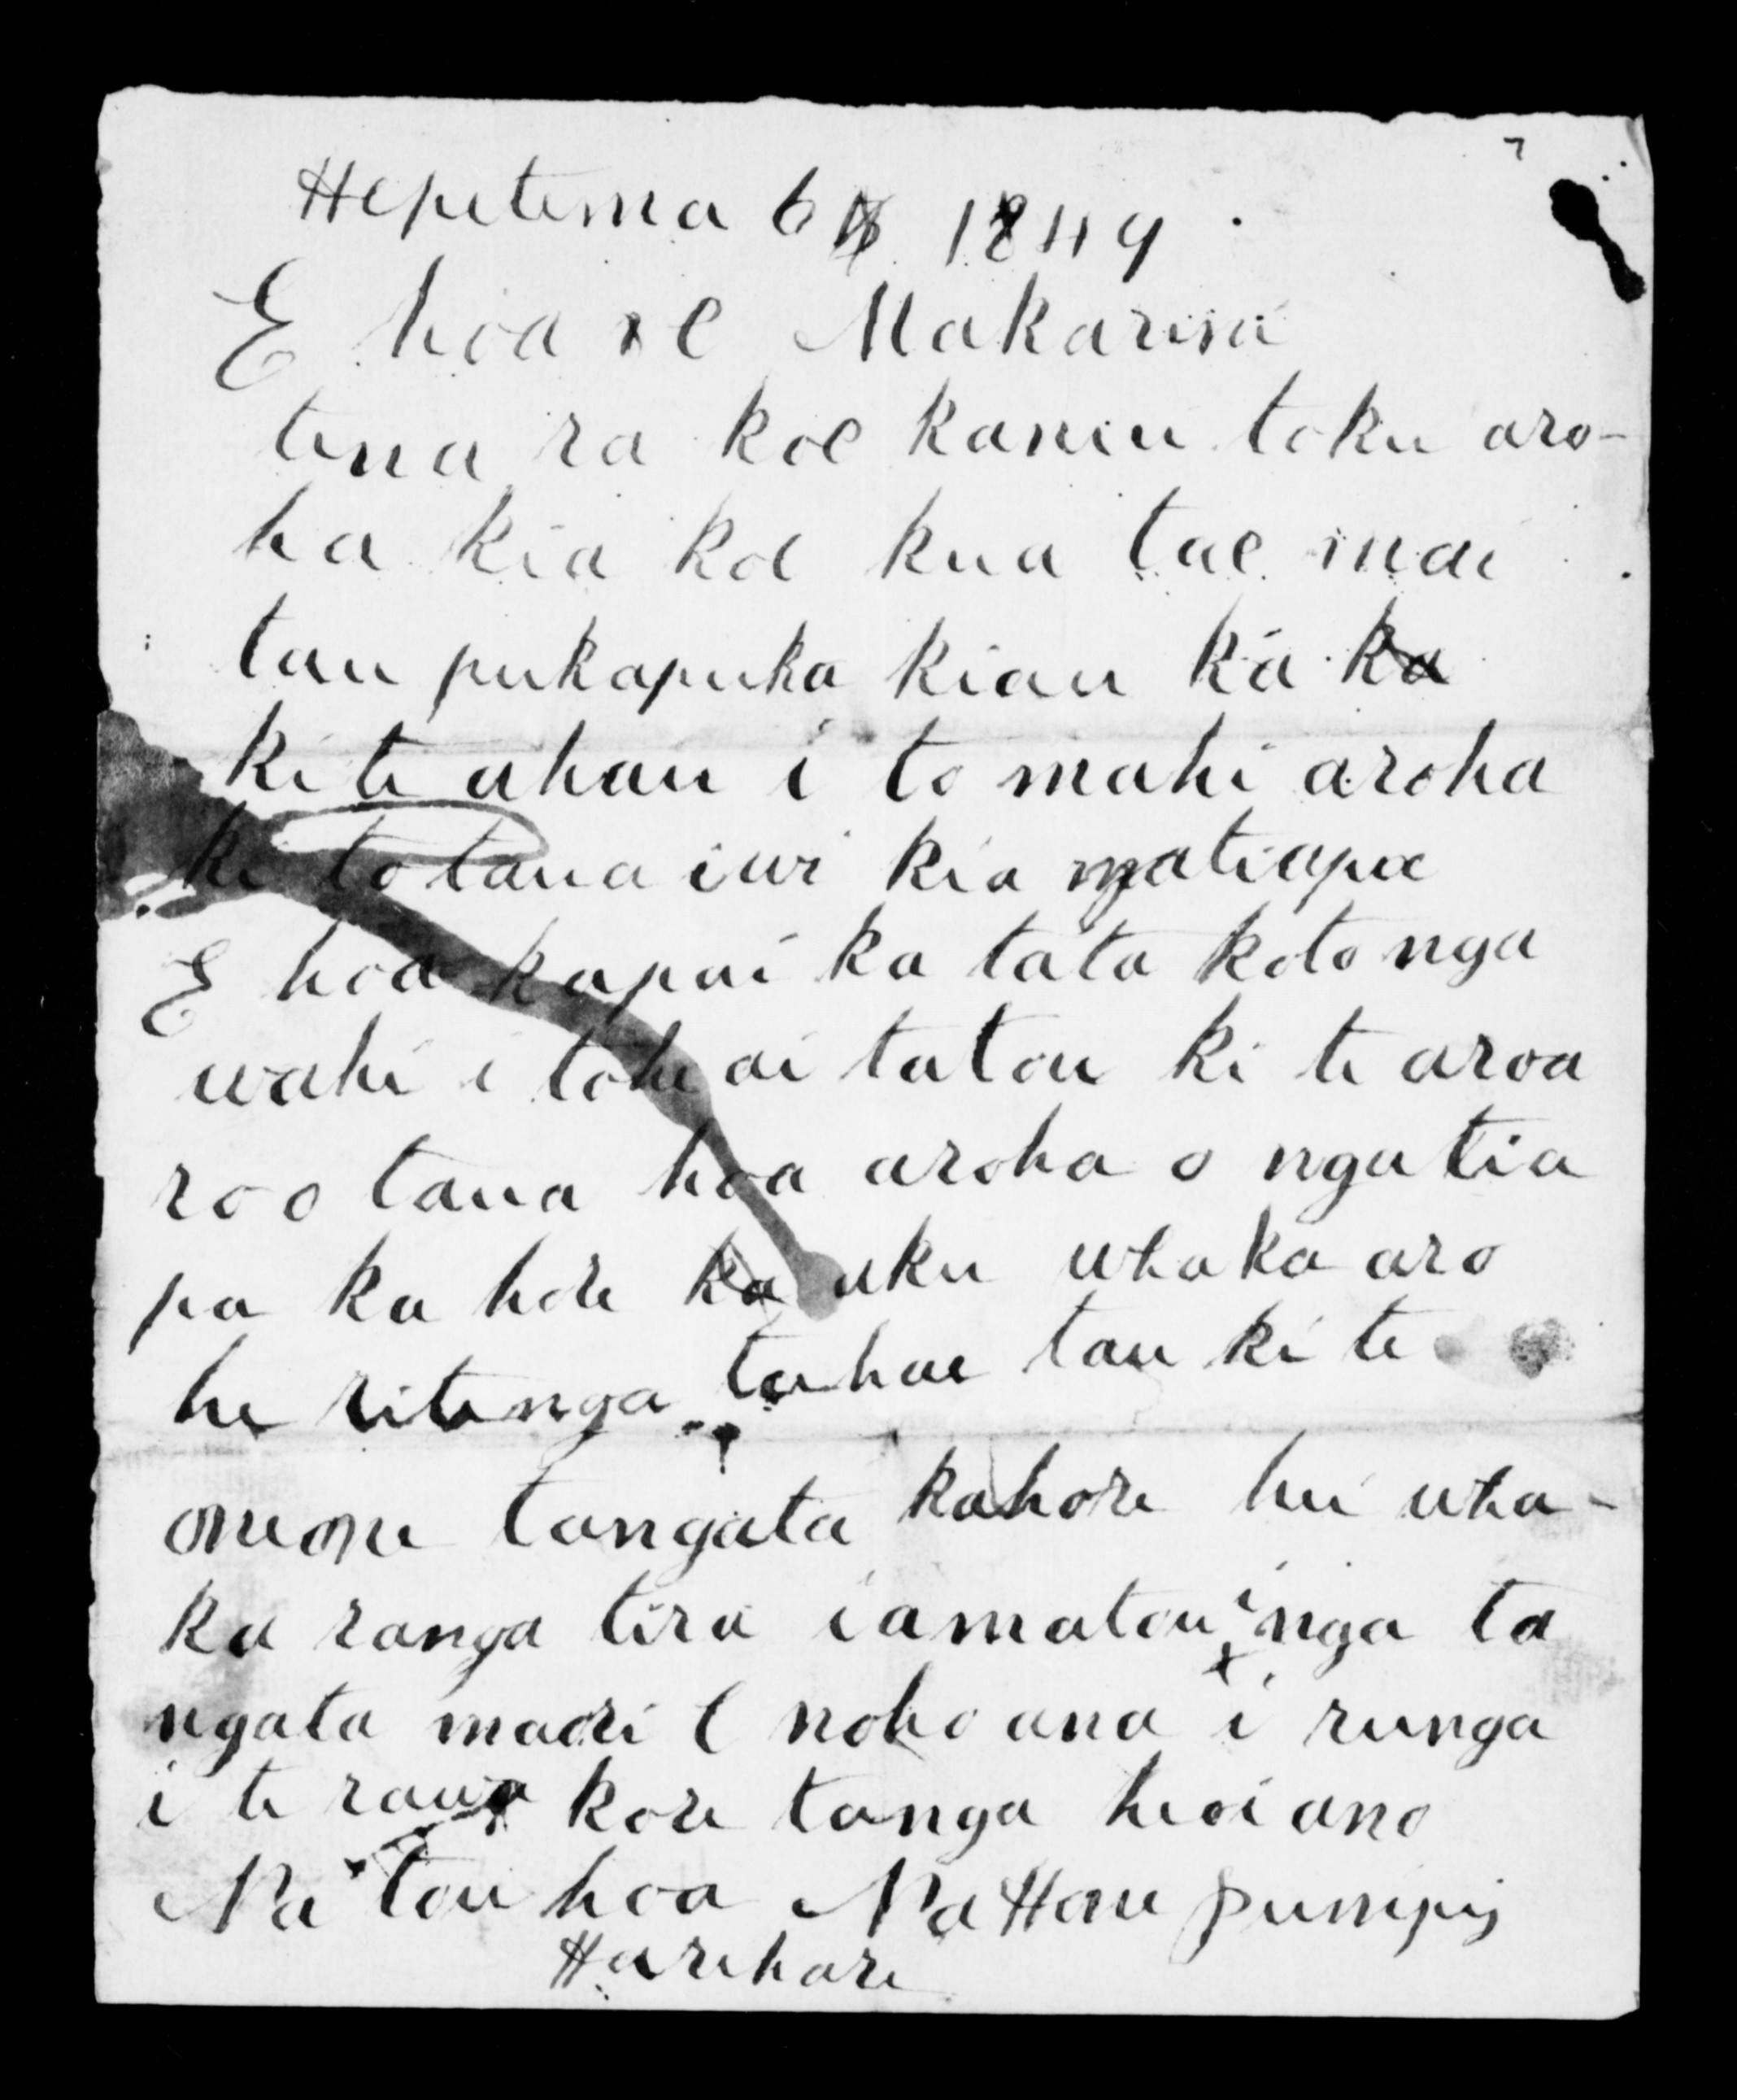 7
Hepetema 6 1849.
E hoa e Makarini
tena ra koe kanui toku aro-
ha kia koe kua tae mai
tau pukapuka kiau ka ka
kite ahau i to mahi aroha
ki to taua iwi kia ngatiapa
E hoa kapai ka tata koto nga
wahi i tohe ai tatou ki te aroa
ro o taua hoa aroha o ngatia
pa ka hore ka aku whaka aro
he ritenga tahae tau ki te
one one tangata kahore hei wha-
ka ranga tira iamatou i nga ta
ngata maori e noho ana i runga
i te rawa kore tanga heoi ano
Na tou hoa Na Hone
Harehare